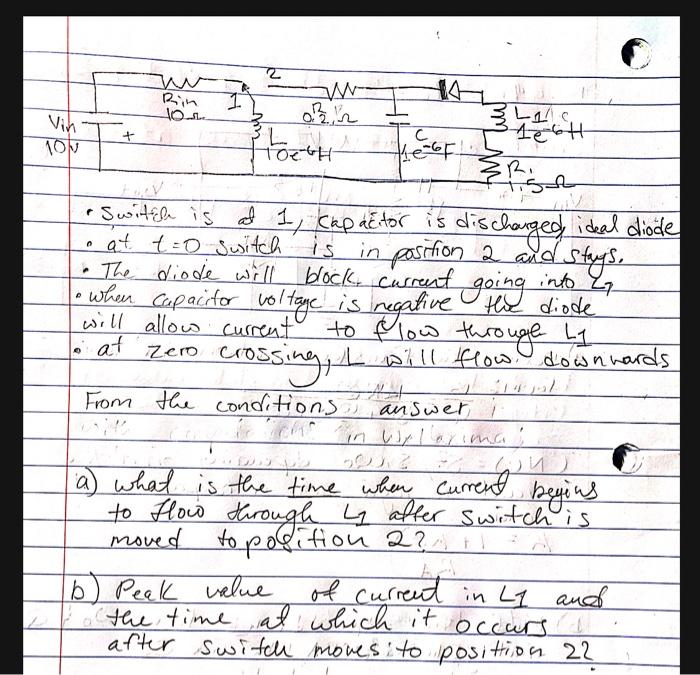 2
Rin 1 R
10Ω 0.2Ω
L1
1e-6H
Vin
10V +
L
10e-6H
C
1e-6F
R1
1.5Ω
• Switch is at 1, capacitor is discharged, ideal diode
• at t=0 switch is in position 2 and stays.
• The diode will block current going into L1
• when capacitor voltage is negative the diode
will allow current to flow through L1
• at zero crossing, L will flow downwards
From the conditions answer,
a) what is the time when current begins
to flow through L1 after switch is
moved to position 2?
b) Peak value of current in L1 and
the time at which it occurs
after switch moves to position 2?